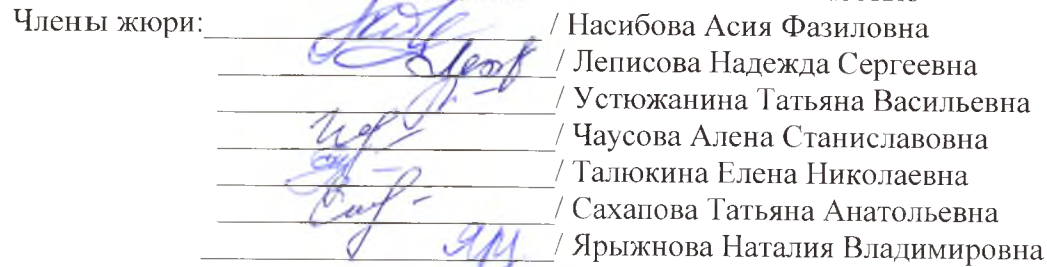 Члены жюри: / Насибова Асия Фазиловна
/ Леписова Надежда Сергеевна
/ Устюжанина Татьяна Васильевна
/ Чаусова Алена Станиславовна
/ Талюкина Елена Николаевна
/ Сахапова Татьяна Анатольевна
/ Ярыжнова Наталия Владимировна